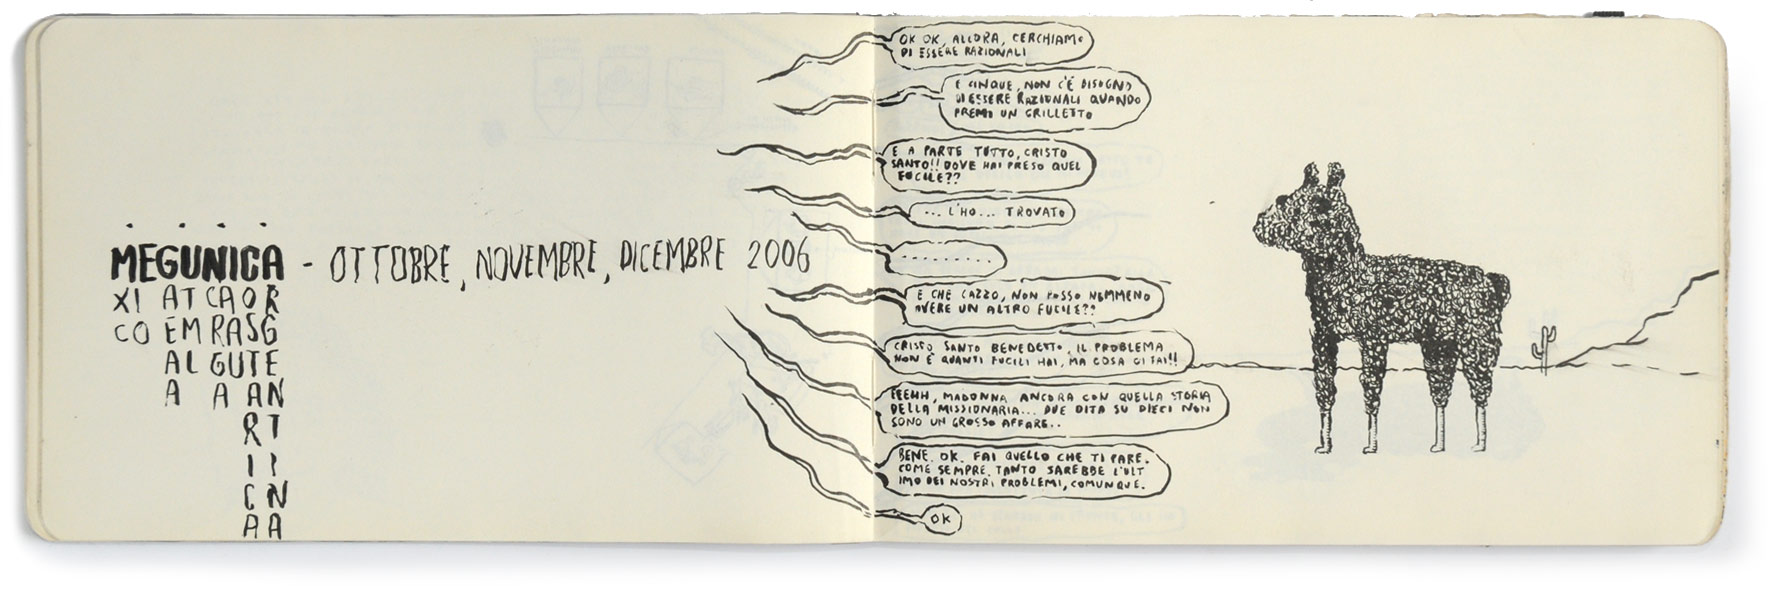 MEGUNICA - OTTOBRE, NOVEMBRE, DICEMBRE 2006
XI AT CAOR
CO EM RASG
AL GUTE
A A AN
RT
II
CN
AA
OK OK, ALLORA, CERCHIAMO
DI ESSERE RAZIONALI
E CINQUE, NON C'È BISOGNO
DI ESSERE RAZIONALI QUANDO
PREMI UN GRILLETTO
E A PARTE TUTTO, CRISTO
SANTO!! DOVE HAI PRESO QUEL
FUCILE??
... L'HO... TROVATO
..........
E CHE CAZZO, NON POSSO NEMMENO
AVERE UN ALTRO FUCILE??
CRISTO SANTO BENEDETTO, IL PROBLEMA
NON È QUANTI FUCILI HAI, MA COSA CI FAI!!
EEEHH, MADONNA ANCORA CON QUELLA STORIA
DELLA MISSIONARIA... DUE DITA SU DIECI NON
SONO UN GROSSO AFFARE..
BENE. OK. FAI QUELLO CHE TI PARE.
COME SEMPRE. TANTO SAREBBE L'ULT
IMO DEI NOSTRI PROBLEMI, COMUNQUE.
OK